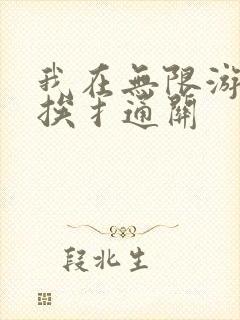 我在無限游
挨扌通關
段北生